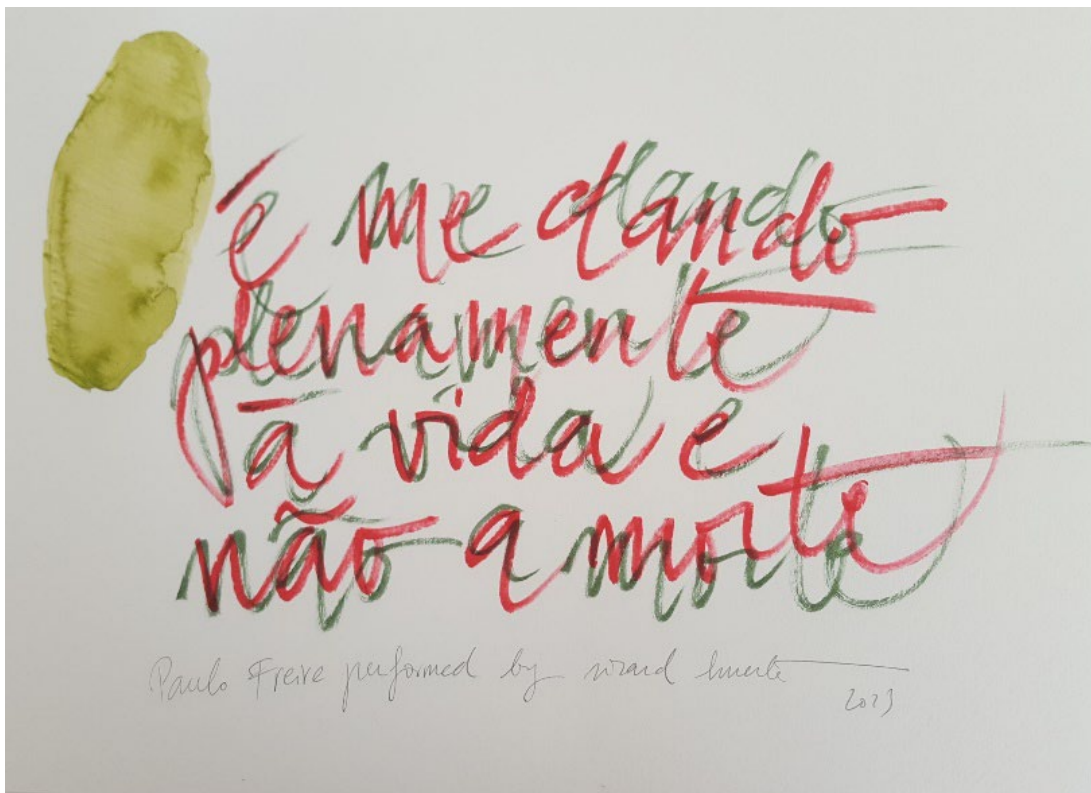 é me dando
plenamente
à vida e
não a morte
Paulo Freire performed by ricard huerta
2023